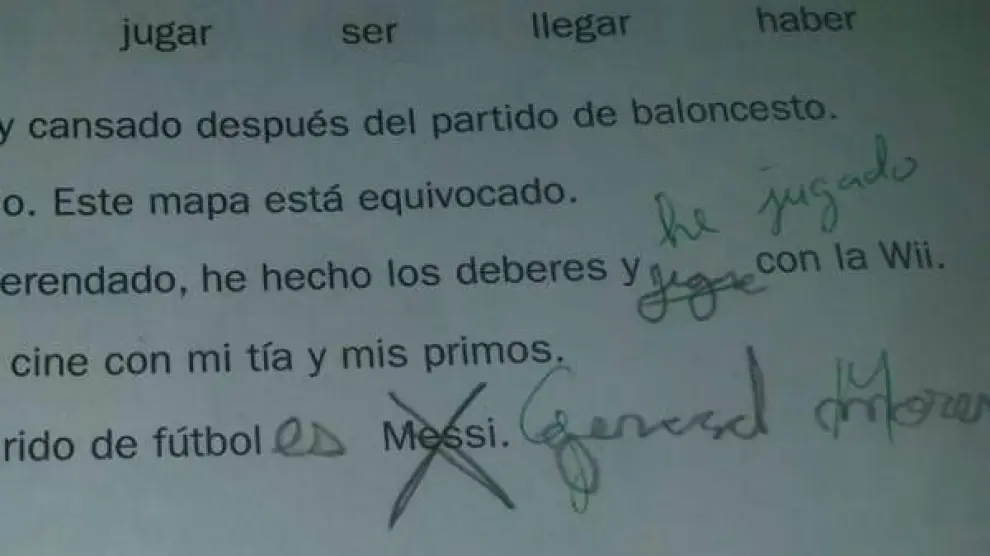 jugar ser llegar haber
y cansado después del partido de baloncesto.
o. Este mapa está equivocado.
he jugado
erendado, he hecho los deberes y con la Wii.
cine con mi tía y mis primos.
rido de fútbol es Messi. General